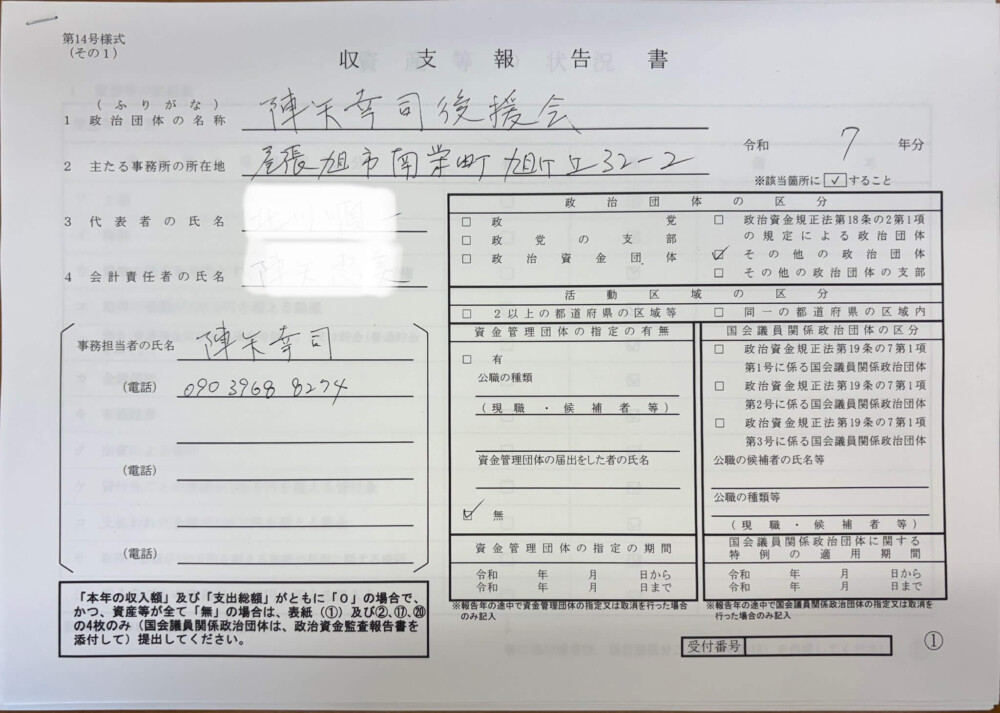 第14号様式
(その1)
収支報告書
(ふりがな)
1 政治団体の名称 陣矢幸司後援会
2 主たる事務所の所在地 尾張旭市南栄町旭ケ丘32-2
令和 7 年分
※該当箇所に✓すること
3 代表者の氏名
4 会計責任者の氏名
事務担当者の氏名 陣矢幸司
(電話) 090 3968 8274
(電話)
(電話)
「本年の収入額」及び「支出総額」がともに「0」の場合で、
かつ、資産等が全て「無」の場合は、表紙(①)及び②、⑰、⑳
の4枚のみ(国会議員関係政治団体は、政治資金監査報告書を
添付して)提出してください。
政治団体の区分
□ 政党
□ 政党の支部
□ 政治資金団体
□ 政治資金規正法第18条の2第1項
の規定による政治団体
☑ その他の政治団体
□ その他の政治団体の支部
活動区域の区分
□ 2以上の都道府県の区域等
□ 同一の都道府県の区域内
資金管理団体の指定の有無
□ 有
公職の種類
(現職・候補者等)
資金管理団体の届出をした者の氏名
☑ 無
資金管理団体の指定の期間
令和 年 月 日から
令和 年 月 日まで
※報告年の途中で資金管理団体の指定又は取消を行った場合
のみ記入
国会議員関係政治団体の区分
□ 政治資金規正法第19条の7第1項
第1号に係る国会議員関係政治団体
□ 政治資金規正法第19条の7第1項
第2号に係る国会議員関係政治団体
□ 政治資金規正法第19条の7第1項
第3号に係る国会議員関係政治団体
公職の候補者の氏名等
公職の種類等
(現職・候補者等)
国会議員関係政治団体に関する
特例の適用期間
令和 年 月 日から
令和 年 月 日まで
※報告年の途中で国会議員関係政治団体の指定又は取消を
行った場合のみ記入
受付番号
①